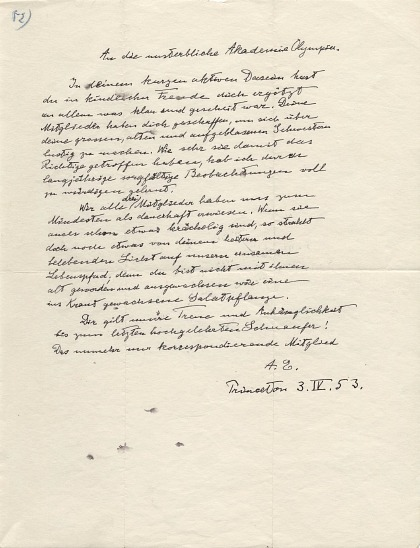 52)
An die unsterbliche Akademie Olympia.
In deinem kurzen aktiven Dasein hast
du in kindlicher Freude dich ergötzt
an allem was klar und gescheit war. Deine
Mitglieder haben dich geschaffen, um sich über
deine grossen, alten und aufgeblasenen Schwestern
lustig zu machen. Wie sehr sie damit das
Richtige getroffen haben, hab ich durch
langjährige sorgfältige Beobachtungen voll
zu würdigen gelernt.
Wir alle drei Mitglieder haben uns zum
Mindesten als dauerhaft erwiesen. Wenn sie
auch schon etwas krächelig sind, so strahlt
doch noch etwas von deinem heitern und
belebenden Licht auf unsern einsamen
Lebenspfad; denn du bist nicht mit ihnen
alt geworden und ausgewachsen wie eine
ins Kraut gewachsene Salatpflanze.
Dir gilt unsere Treue und Anhänglichkeit
bis zum letzten hochgelehrten Schnaufer!
Das nunmehr nur korrespondierende Mitglied
A. E.
Princeton 3. IV. 53.